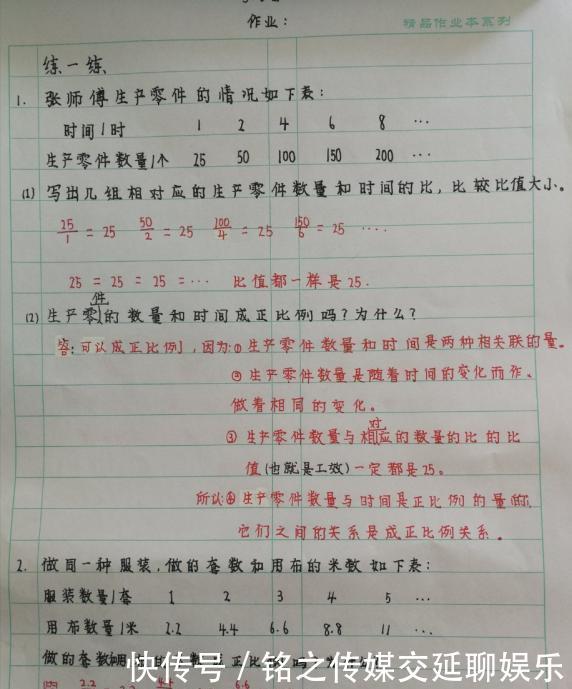 作业：
精品作业本系列
练一练
1. 张师傅生产零件的情况如下表：
时间/时 1 2 4 6 8 …
生产零件数量/个 25 50 100 150 200 …
(1) 写出几组相对应的生产零件数量和时间的比，比较比值大小。
25/1 = 25 50/2 = 25 100/4 = 25 150/6 = 25 ····
25 = 25 = 25 = ··· 比值都一样是25.
(2) 生产零件的数量和时间成正比例吗？为什么？
答：可以成正比例，因为：① 生产零件数量和时间是两种相关联的量。
② 生产零件数量是随着时间的变化而作、
做着相同的变化。
③ 生产零件数量与相对应的数量的比的比
值(也就是工效)一定都是25。
所以④生产零件数量与时间是正比例的量的，
它们之间的关系是成正比例关系。
2. 做同一种服装，做的套数和用布的米数如下表：
服装数量/套 1 2 3 4 5 …
用布数量/米 2.2 4.4 6.6 8.8 11 …
做的套数
快传号／铭之传媒交延聊娱乐